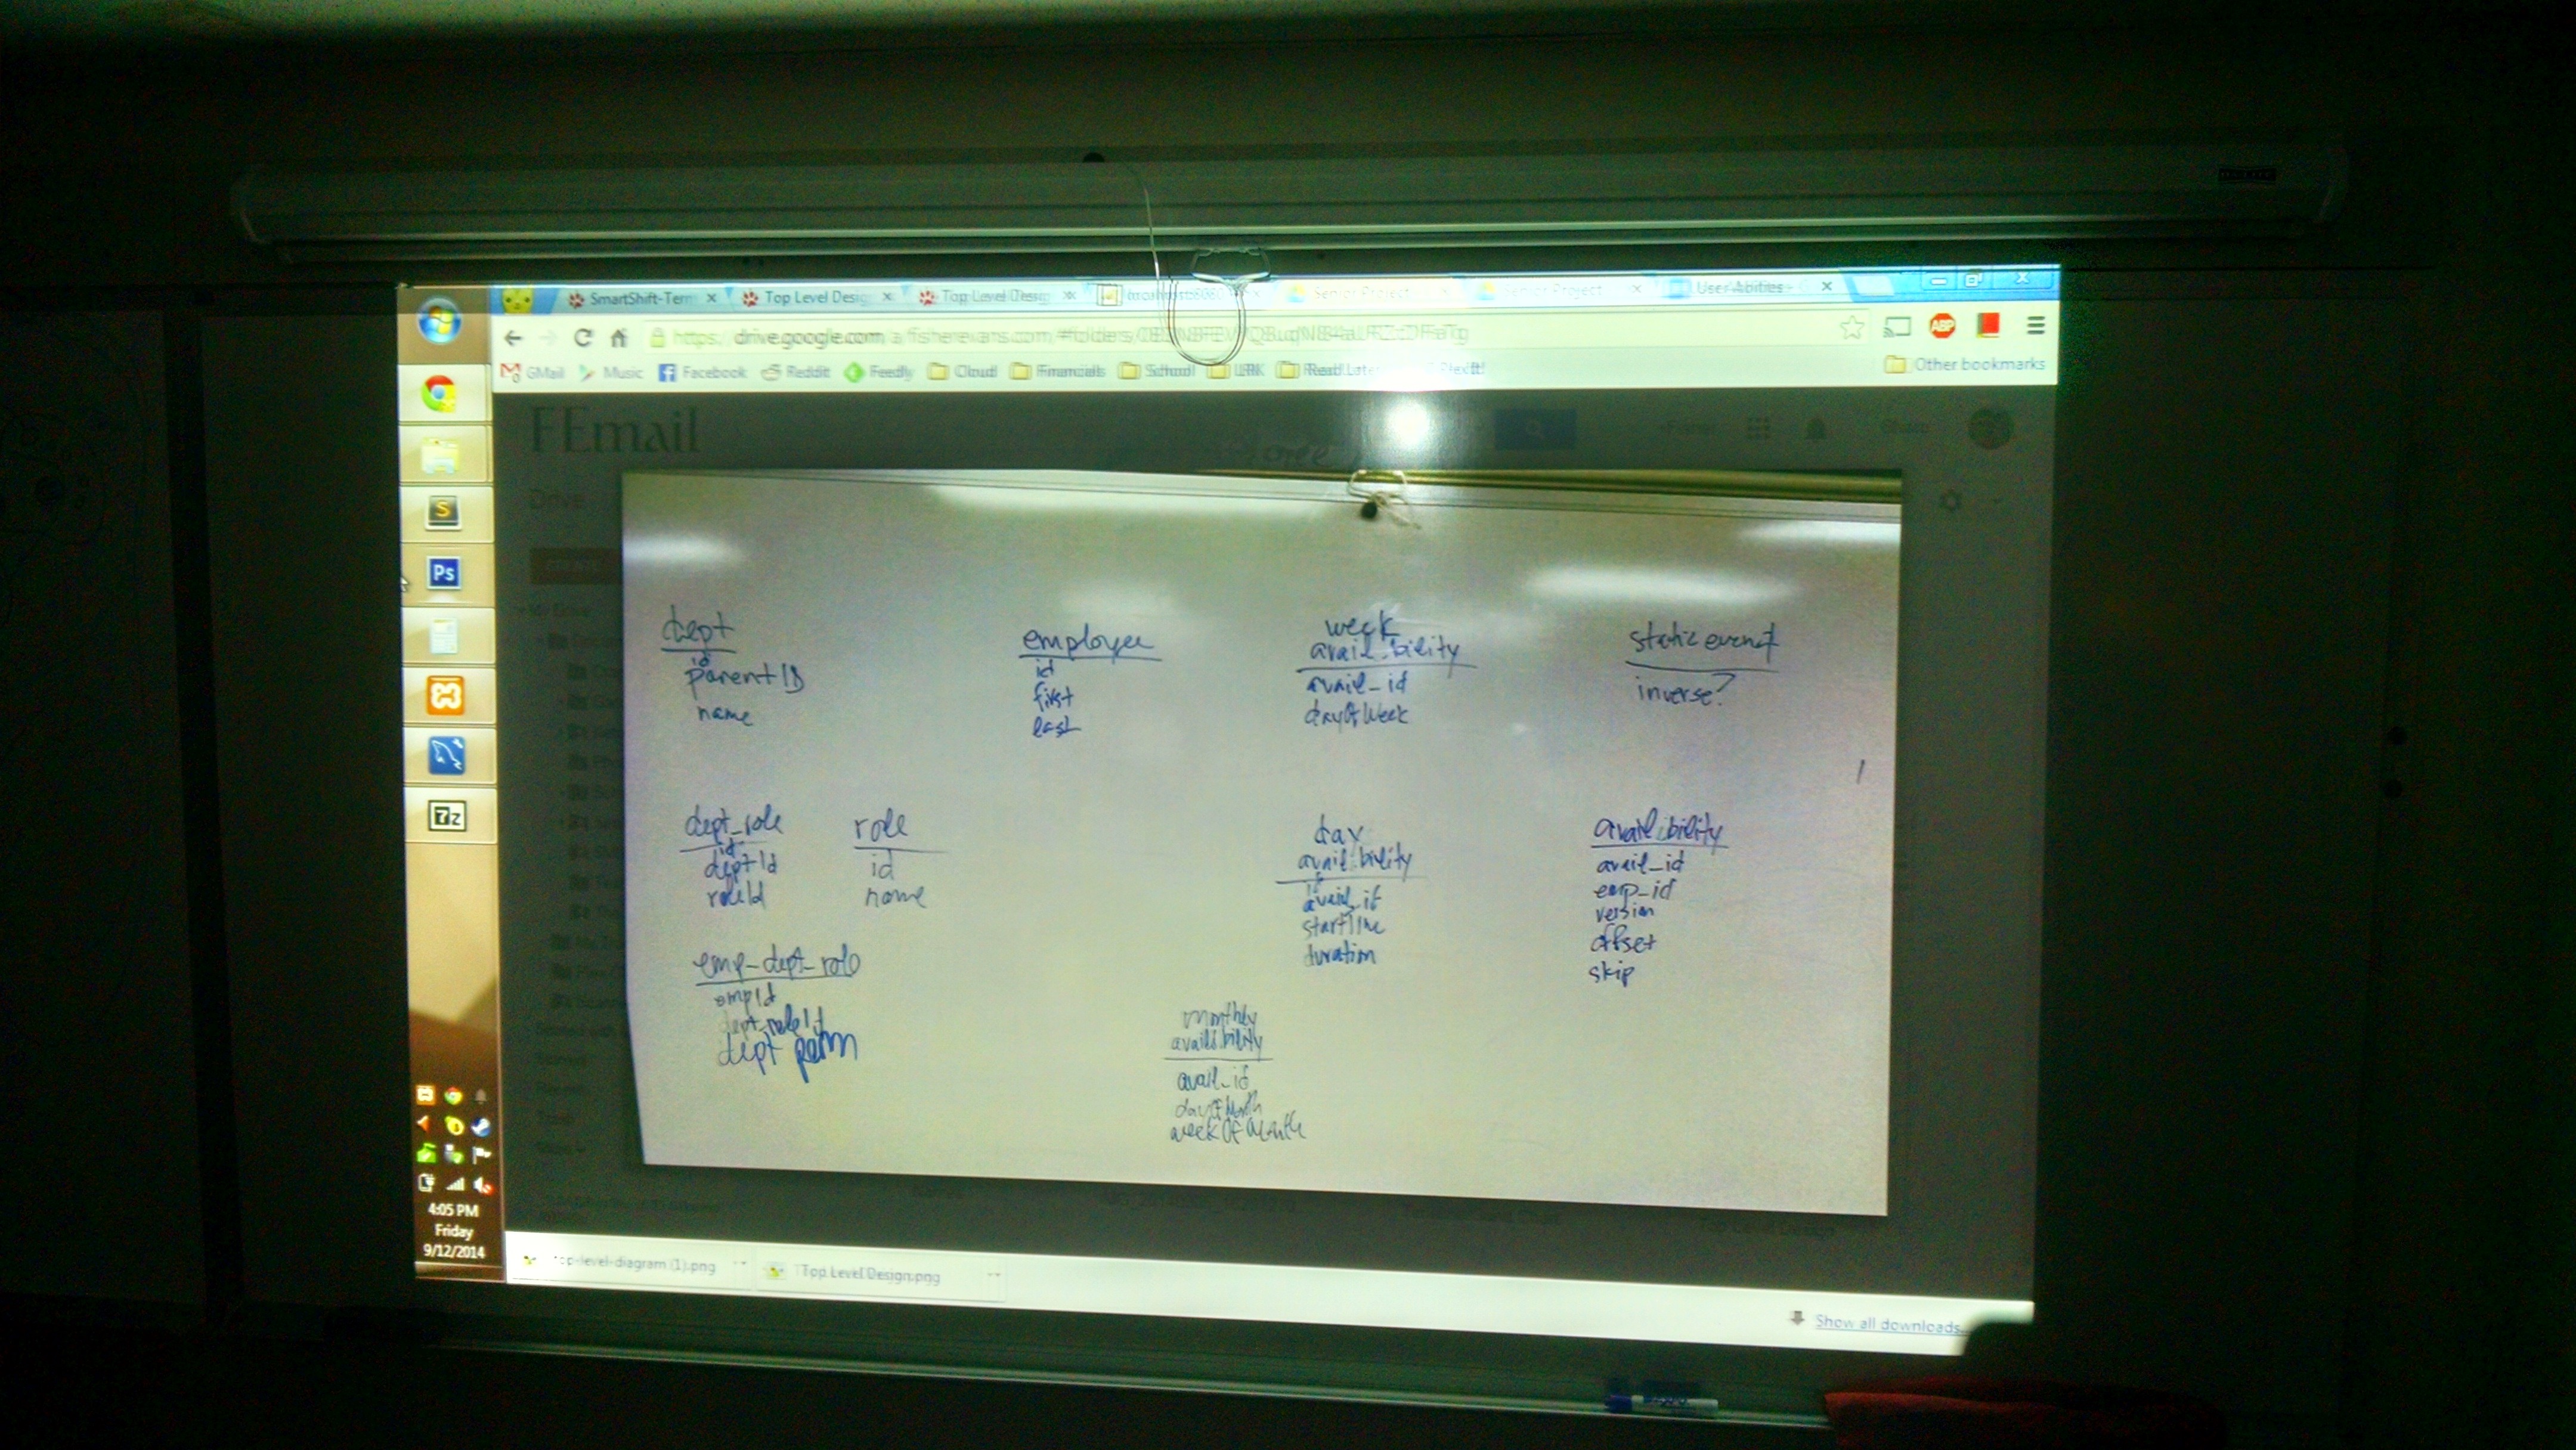 SmartShift-Term
Top Level Desig
Top Level Desig
localhost:8080
Senior Project
Senior Project
User Abilities -
https://drive.google.com/a/fisherevans.com/#folders/
GMail
Music
Facebook
Reddit
Feedly
Cloud
Financials
School
LRK
Read Later
Plexit!
Other bookmarks
FEmail
Drive
dept
id
parentID
name
employee
id
first
last
week
availibility
avail_id
dayOfWeek
static event
inverse?
dept_role
id
deptId
roleId
role
id
name
day
availibility
id
avail_id
startTime
duration
availibility
avail_id
emp_id
version
offset
skip
emp_dept_role
empId
dept_roleId
dept perm
monthly
availibility
avail_id
dayOfMonth
weekOfMonth
S
Ps
7z
4:05 PM
Friday
9/12/2014
top-level-diagram (1).png
Top Level Design.png
Show all downloads...